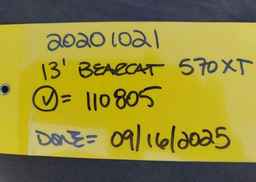 20201021
13' BEARCAT 570XT
✓= 110805
DONE= 09/16/2025